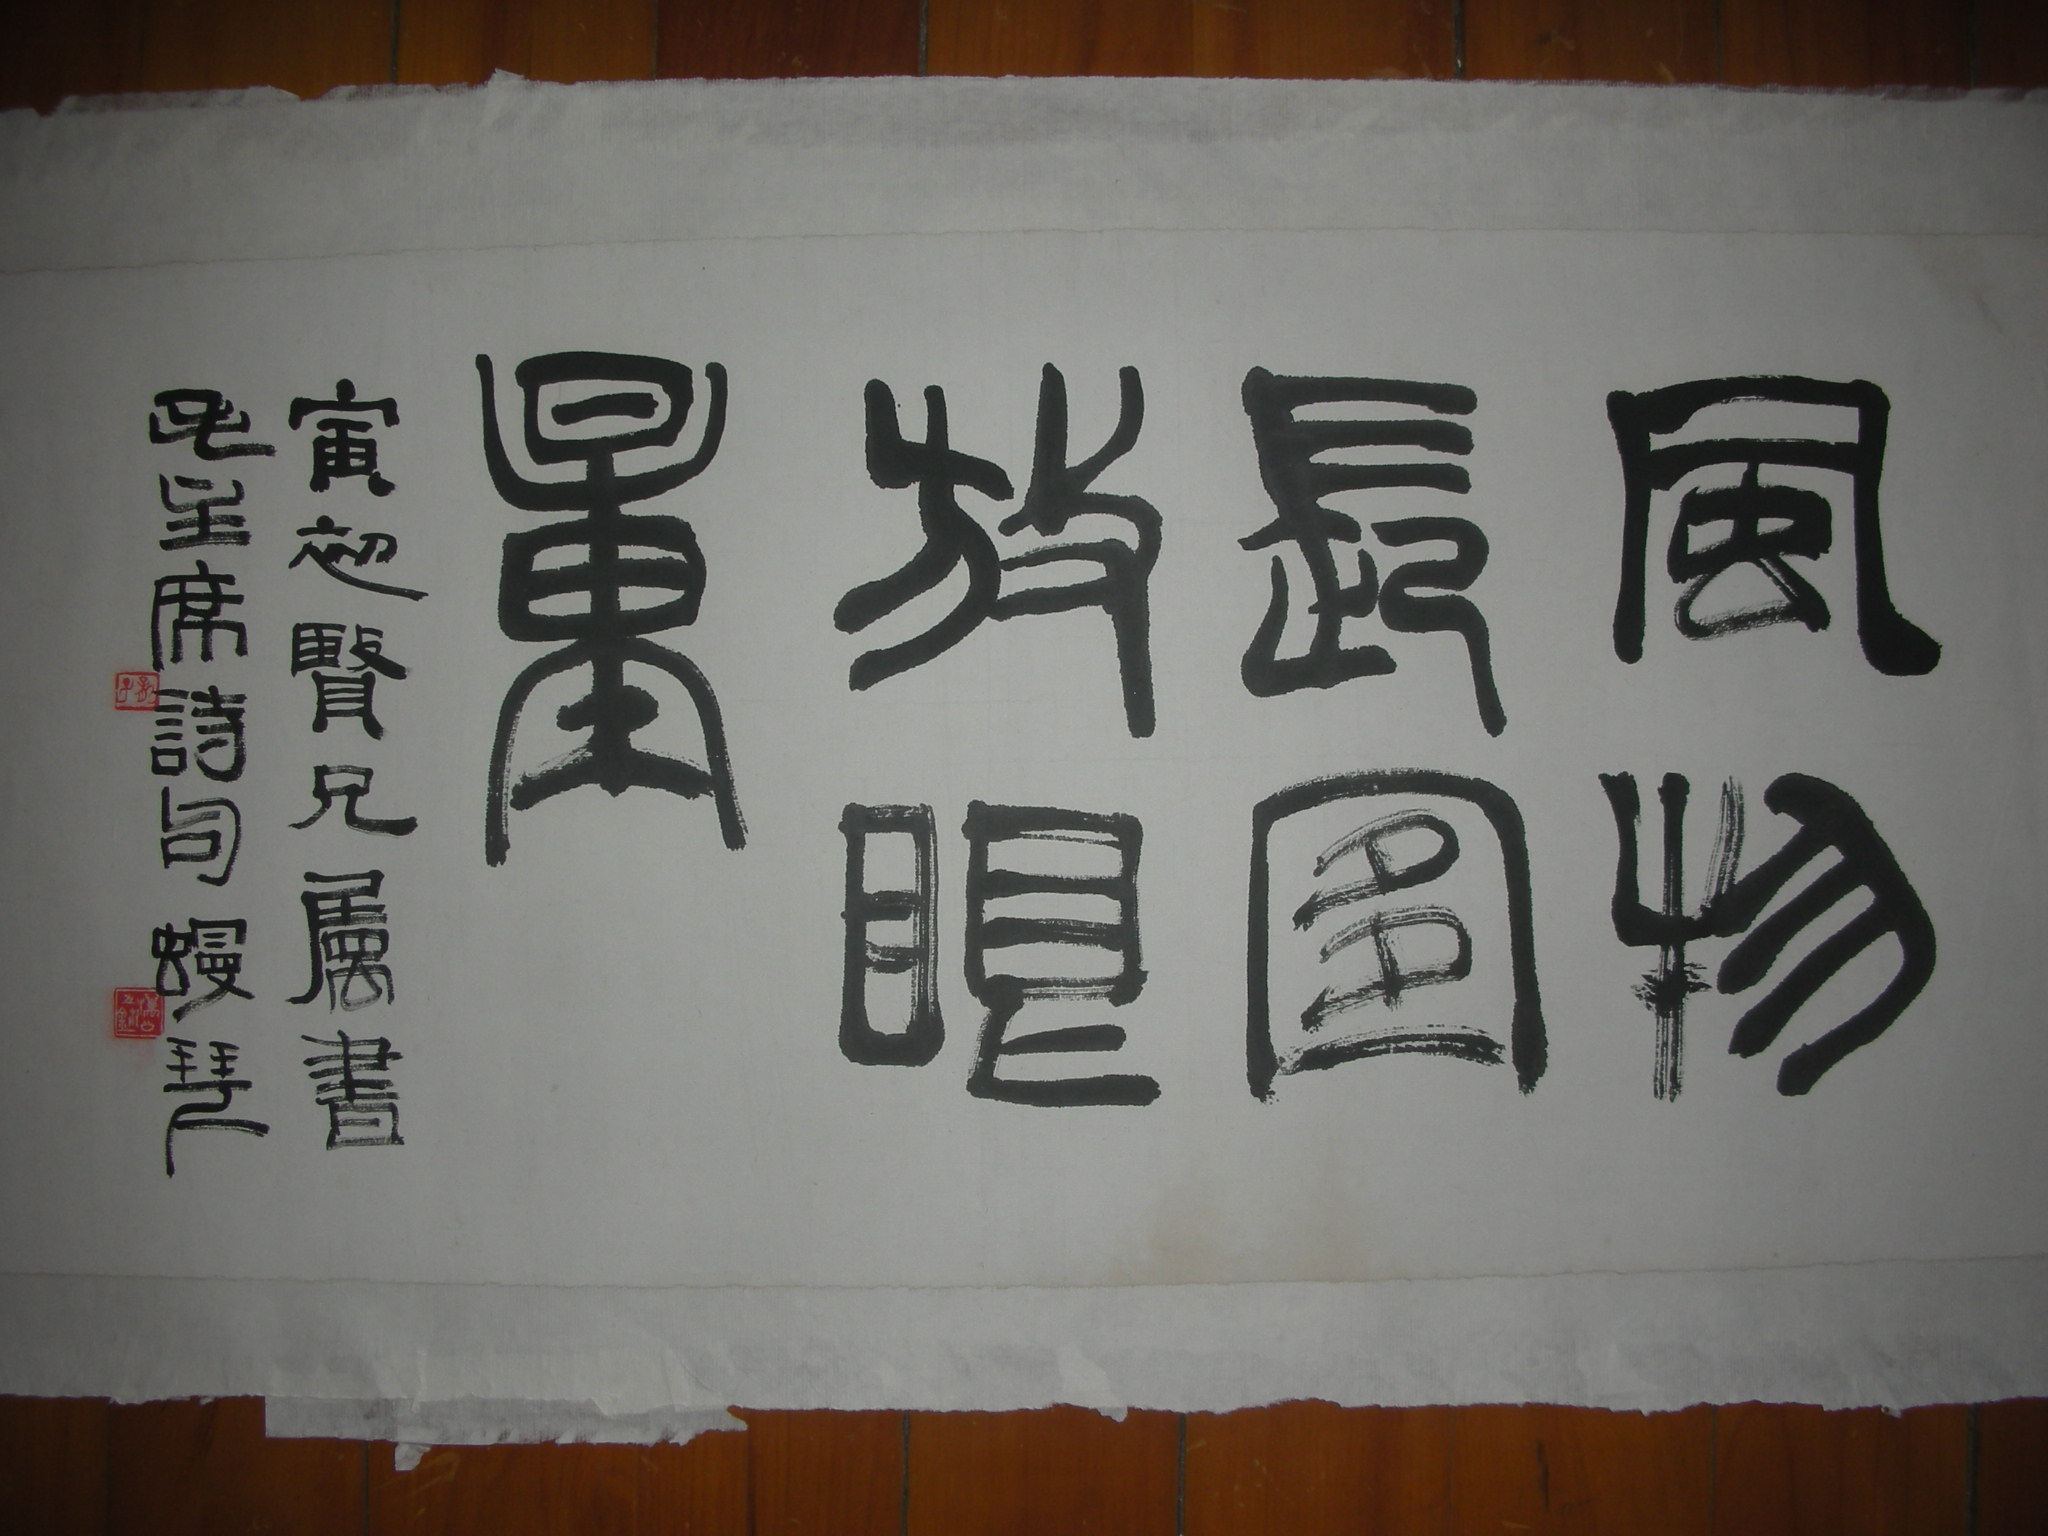 風物
長宜
放眼
量
寅初賢兄屬書
毛主席詩句 琴